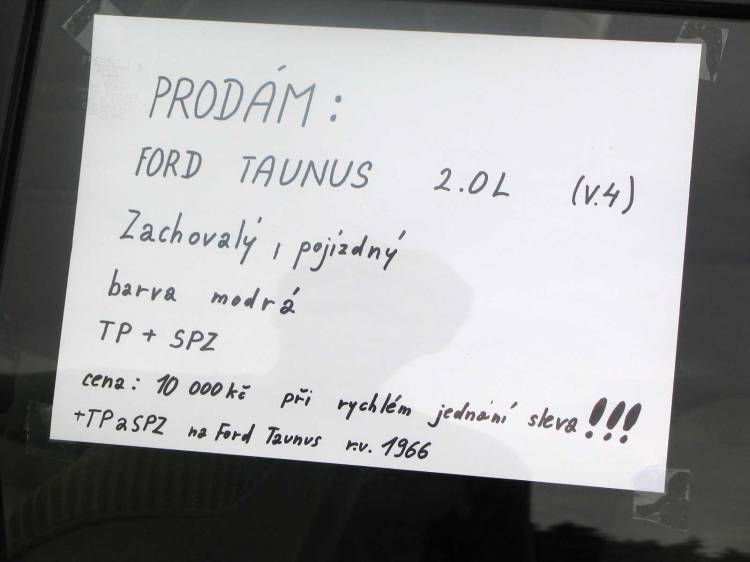 PRODÁM:
FORD TAUNUS 2.0L (V.4)
Zachovalý, pojízdný
barva modrá
TP + SPZ
cena: 10 000 kč při rychlém jednání sleva!!!
+TP a SPZ na Ford Taunus r.v. 1966